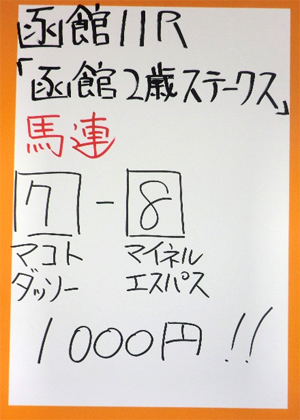 函館11R
「函館2歳ステークス」
馬連
7-8
マコト マイネル
ダッソー エスパス
1000円!!